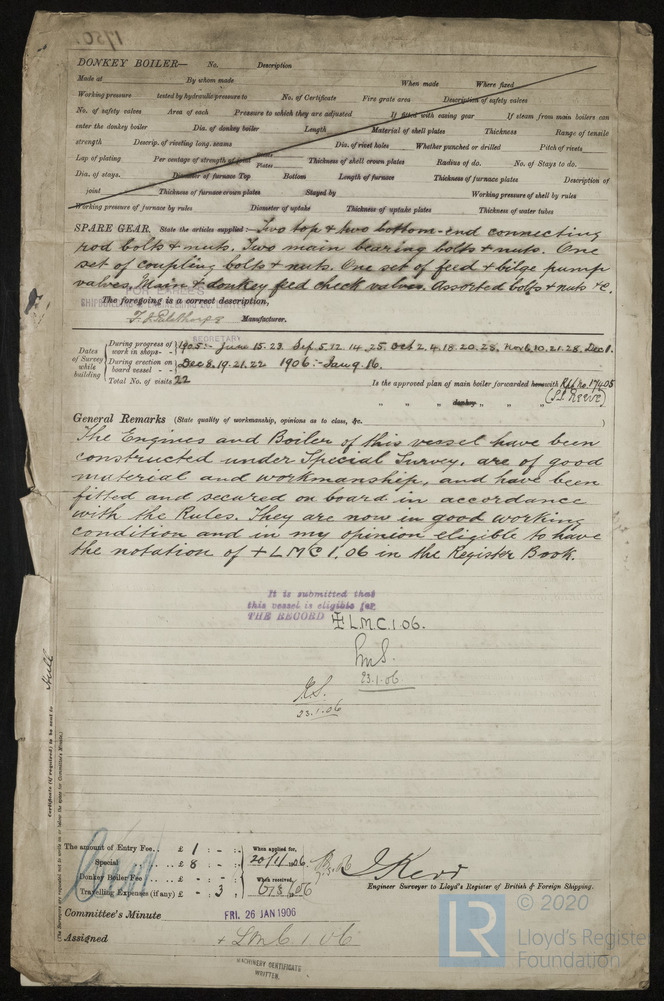 DONKEY BOILER— No. Description
Made at By whom made When made Where fixed
Working pressure tested by hydraulic pressure to No. of Certificate Fire grate area Description of safety valves
No. of safety valves Area of each Pressure to which they are adjusted If fitted with easing gear If steam from main boilers can
enter the donkey boiler Dia. of donkey boiler Length Material of shell plates Thickness Range of tensile
strength Descrip. of riveting long. seams Dia. of rivet holes Whether punched or drilled Pitch of rivets
Lap of plating Per centage of strength of joint Plates Thickness of shell crown plates Radius of do. No. of Stays to do.
Dia. of stays. Diameter of furnace Top Bottom Length of furnace Thickness of furnace plates Description of
joint Thickness of furnace crown plates Stayed by Working pressure of shell by rules
Working pressure of furnace by rules Diameter of uptake Thickness of uptake plates Thickness of water tubes
SPARE GEAR. State the articles supplied:— Two top & two bottom-end connecting
rod bolts & nuts. Two main bearing bolts & nuts. One
set of coupling bolts & nuts. One set of feed & bilge pump
valves. Main & donkey feed check valves. Assorted bolts & nuts &c.
The foregoing is a correct description,
Manufacturer.
SECRETARY
Dates of Survey while building
During progress of work in shops - - 1905:- June 15. 23. Sep. 5. 12. 14. 25. Oct 2. 4. 18. 20. 28. Nov 6. 10. 21. 28. Dec 1.
During erection on board vessel - - - Dec 8. 19. 21. 22 1906:- Jan 9. 16.
Total No. of visits 22
Is the approved plan of main boiler forwarded herewith Rpt no. 17405
" " " donkey " " " (S.S. Reeve)
General Remarks (State quality of workmanship, opinions as to class, &c.
The Engines and Boiler of this vessel have been
constructed under Special Survey, are of good
material and workmanship, and have been
fitted and secured on board in accordance
with the Rules. They are now in good working
condition and in my opinion eligible to have
the notation of + LMC 1.06 in the Register Book.
It is submitted that
this vessel is eligible for
THE RECORD + L.M.C. 1.06.
23.1.06
23.1.06
Certificate (if required) to be sent to Hull
(The Surveyors are requested not to write on or below the space for Committee's Minute.)
The amount of Entry Fee.. £ 1 : - : -
Special .. £ 8 : - : -
Donkey Boiler Fee .. £ : :
Travelling Expenses (if any) £ - : 3 : -
When applied for,
When received,
J. Kerr
Engineer Surveyor to Lloyd's Register of British & Foreign Shipping.
Committee's Minute FRI. 26 JAN 1906
Assigned + LMC 1 06
MACHINERY CERTIFICATE
WRITTEN.
LR © 2020
Lloyd's Register
Foundation